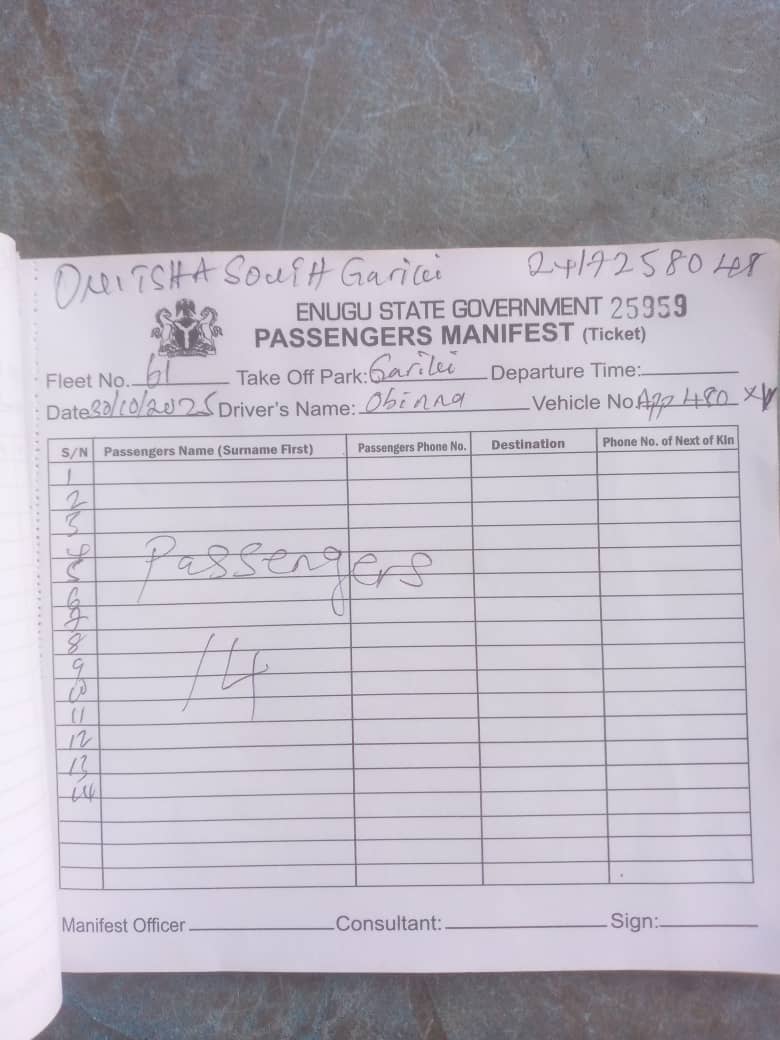 ONITSHA SOUTH Gariki 2417258048
ENUGU STATE GOVERNMENT 25959
PASSENGERS MANIFEST (Ticket)
Fleet No. 61 Take Off Park: Gariki Departure Time:
Date 30/10/2025 Driver's Name: Obinna Vehicle No App 480 XV
S/N Passengers Name (Surname First) Passengers Phone No. Destination Phone No. of Next of Kin
1
2
3
4
5
Passengers
6
7
8
9
14
10
11
12
13
14
Manifest Officer Consultant: Sign: